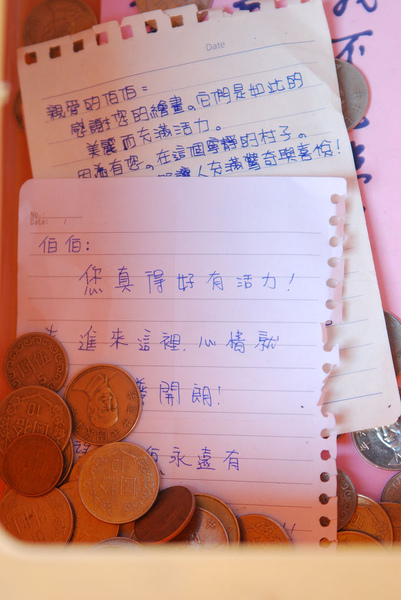 Date
親愛的伯伯：
感謝您的繪畫。它們是如此的
美麗而充滿活力。
因為有您。在這個寧靜的村子。
讓人充滿驚奇與喜份!
No.
Date: /
伯伯:
您真得好有活力!
進來這裡,心情就
開朗!
永遠有
不